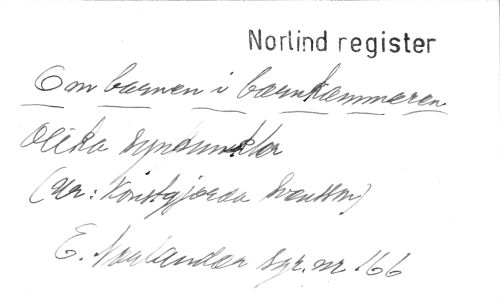 Norlind register
Om barnen i barnkammaren
Olika synpunkter
(Ur: Konstgjorda Svensson)
E. Norlander syr. nr 166